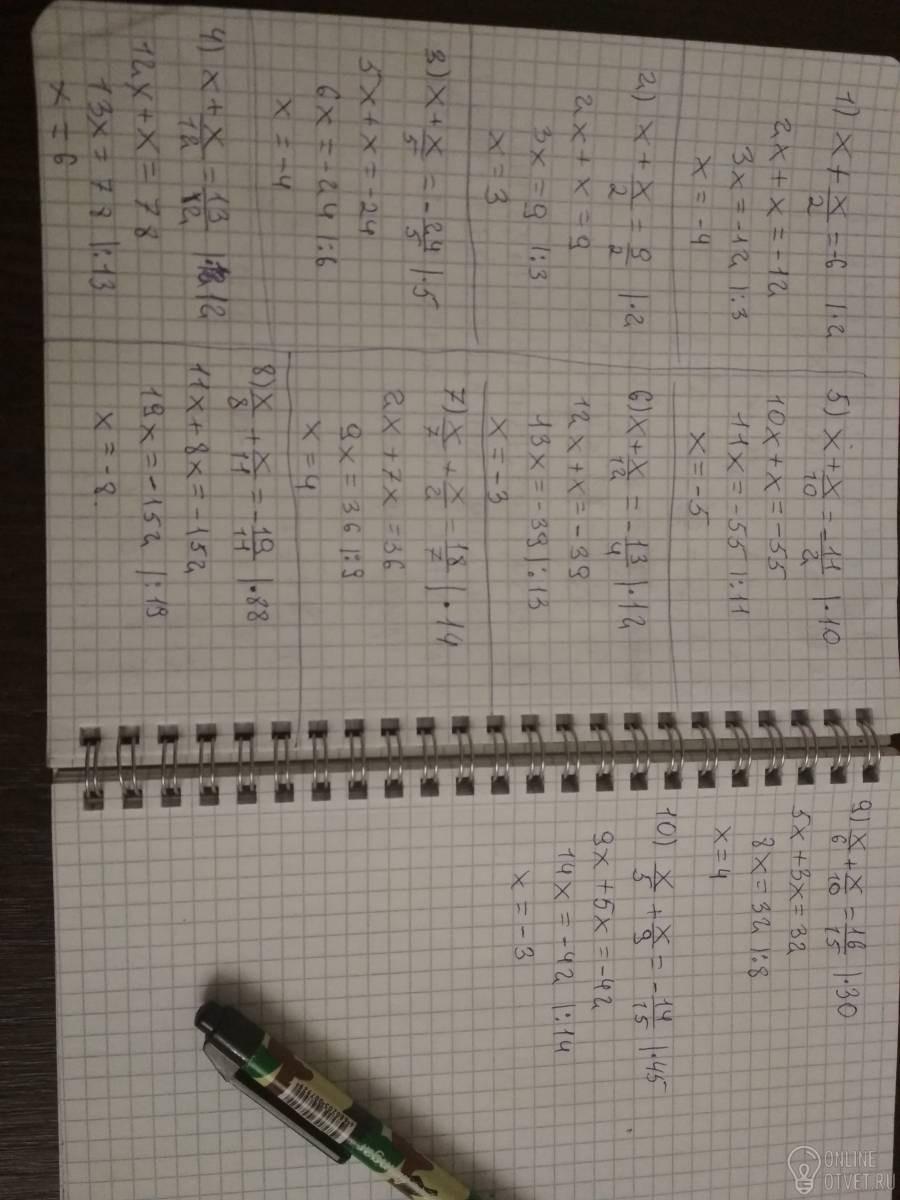 1) x + x/2 = -6 |·2
2x + x = -12
3x = -12 |:3
x = -4
2) x + x/2 = 9/2 |·2
2x + x = 9
3x = 9 |:3
x = 3
3) x + x/5 = -24/5 |·5
5x + x = -24
6x = -24 |:6
x = -4
4) x + x/12 = 13/2 |·12
12x + x = 78
13x = 78 |:13
x = 6
5) x + x/10 = -11/2 |·10
10x + x = -55
11x = -55 |:11
x = -5
6) x + x/12 = -13/4 |·12
12x + x = -39
13x = -39 |:13
x = -3
7) x/7 + x/2 = 18/7 |·14
2x + 7x = 36
9x = 36 |:9
x = 4
8) x/8 + x/11 = -19/11 |·88
11x + 8x = -152
19x = -152 |:19
x = -8
9) x/6 + x/10 = 16/15 |·30
5x + 3x = 32
8x = 32 |:8
x = 4
10) x/5 + x/9 = -14/15 |·45
9x + 5x = -42
14x = -42 |:14
x = -3
ONLINE
OTVET.RU